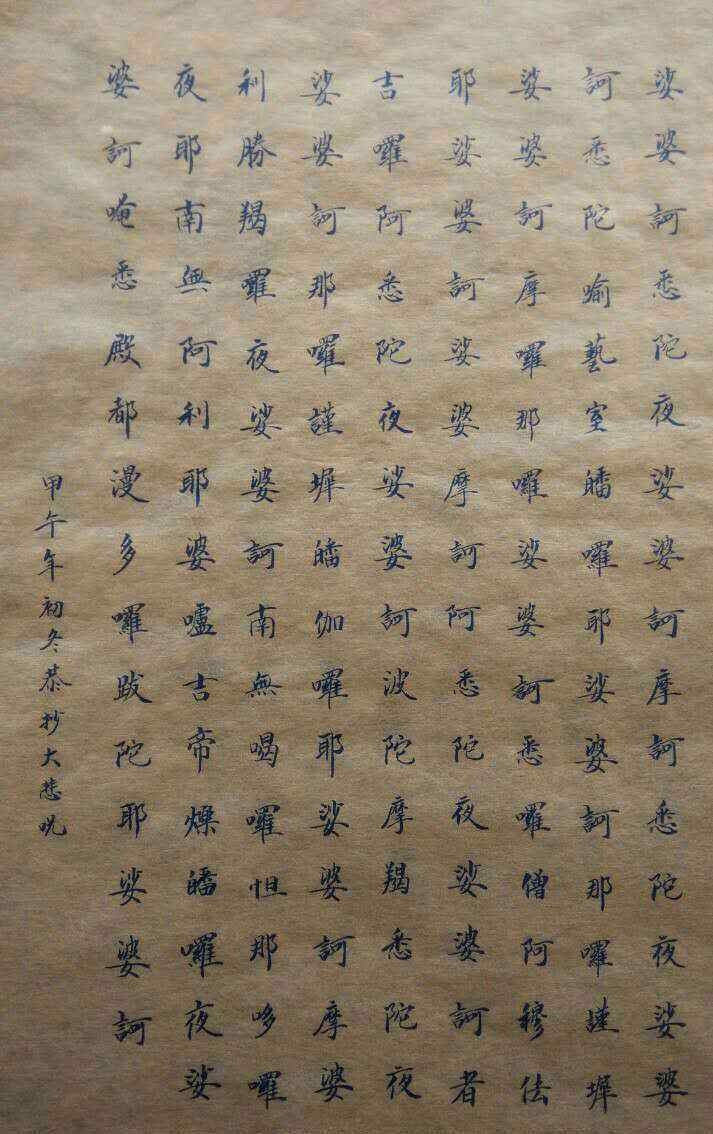 娑婆訶悉陀夜娑婆訶摩訶悉陀夜娑婆
訶悉陀喻藝室皤囉耶娑婆訶那囉謹墀
娑婆訶摩囉那囉娑婆訶悉囉僧阿穆佉
耶娑婆訶娑婆摩訶阿悉陀夜娑婆訶者
吉囉阿悉陀夜娑婆訶波陀摩羯悉陀夜
娑婆訶那囉謹墀皤伽囉耶娑婆訶摩婆
利勝羯囉夜娑婆訶南無喝囉怛那哆囉
夜耶南無阿利耶婆嚧吉帝爍皤囉夜娑
婆訶唵悉殿都漫多囉跋陀耶娑婆訶
甲午年初冬恭抄大悲呪